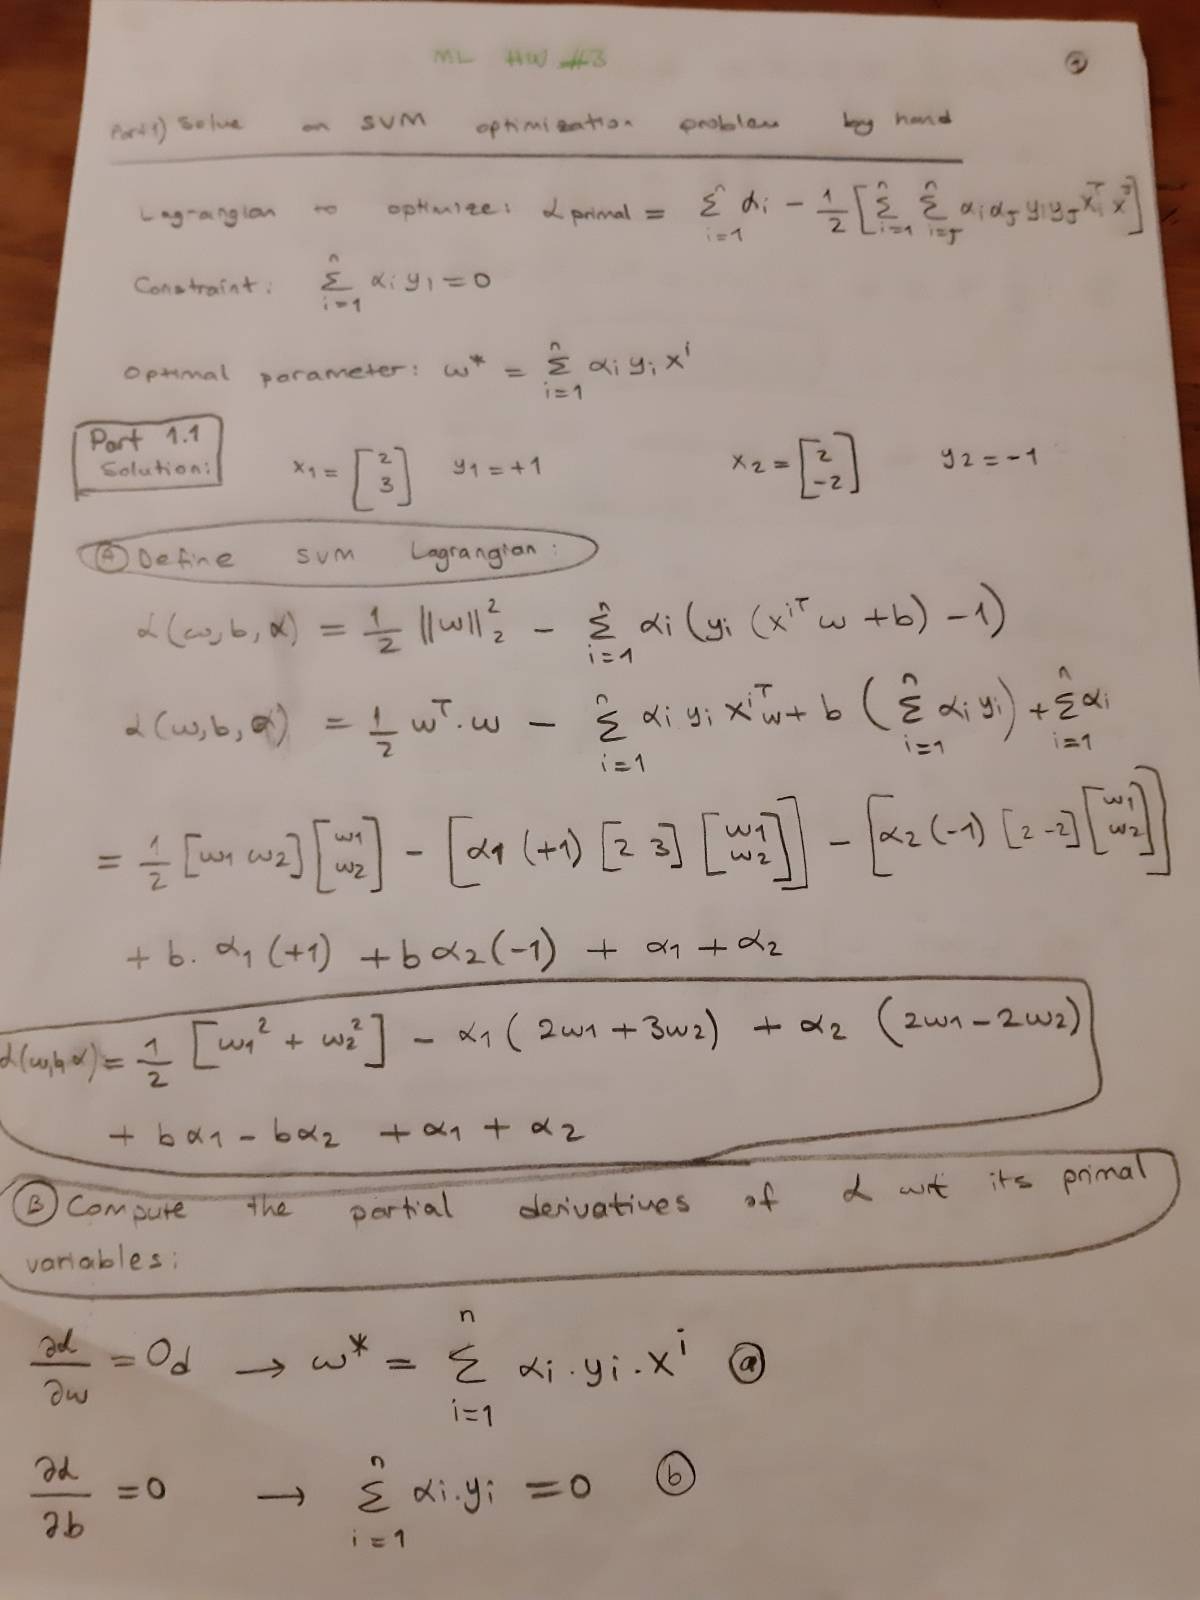 ML HW #3
1
Part 1) Solve an SVM optimization problem by hand
Lagrangian to optimize: L primal = Σ_{i=1}^{n} αi - 1/2 [Σ_{i=1}^{n} Σ_{i=J}^{n} αi αJ yi yJ xi^T x^J]
Constraint: Σ_{i=1}^{n} αi yi = 0
Optimal parameter: w* = Σ_{i=1}^{n} αi yi x^i
Part 1.1
Solution:
x1 = [2 3] y1 = +1 x2 = [2 -2] y2 = -1
(A) Define SVM Lagrangian:
L(w,b,α) = 1/2 ||w||_2^2 - Σ_{i=1}^{n} αi (yi (x^{iT} w + b) - 1)
L(w,b,α) = 1/2 w^T · w - Σ_{i=1}^{n} αi yi x^{iT} w + b (Σ_{i=1}^{n} αi yi) + Σ_{i=1}^{n} αi
= 1/2 [w1 w2] [w1 w2] - [α1 (+1) [2 3] [w1 w2]] - [α2 (-1) [2 -2] [w1 w2]]
+ b. α1 (+1) + b α2 (-1) + α1 + α2
L(w,b,α) = 1/2 [w1^2 + w2^2] - α1 (2w1 + 3w2) + α2 (2w1 - 2w2)
+ bα1 - bα2 + α1 + α2
(B) Compute the partial derivatives of L wrt its primal
variables:
∂L/∂w = 0d → w* = Σ_{i=1}^{n} αi · yi · x^i (a)
∂L/∂b = 0 → Σ_{i=1}^{n} αi · yi = 0 (b)